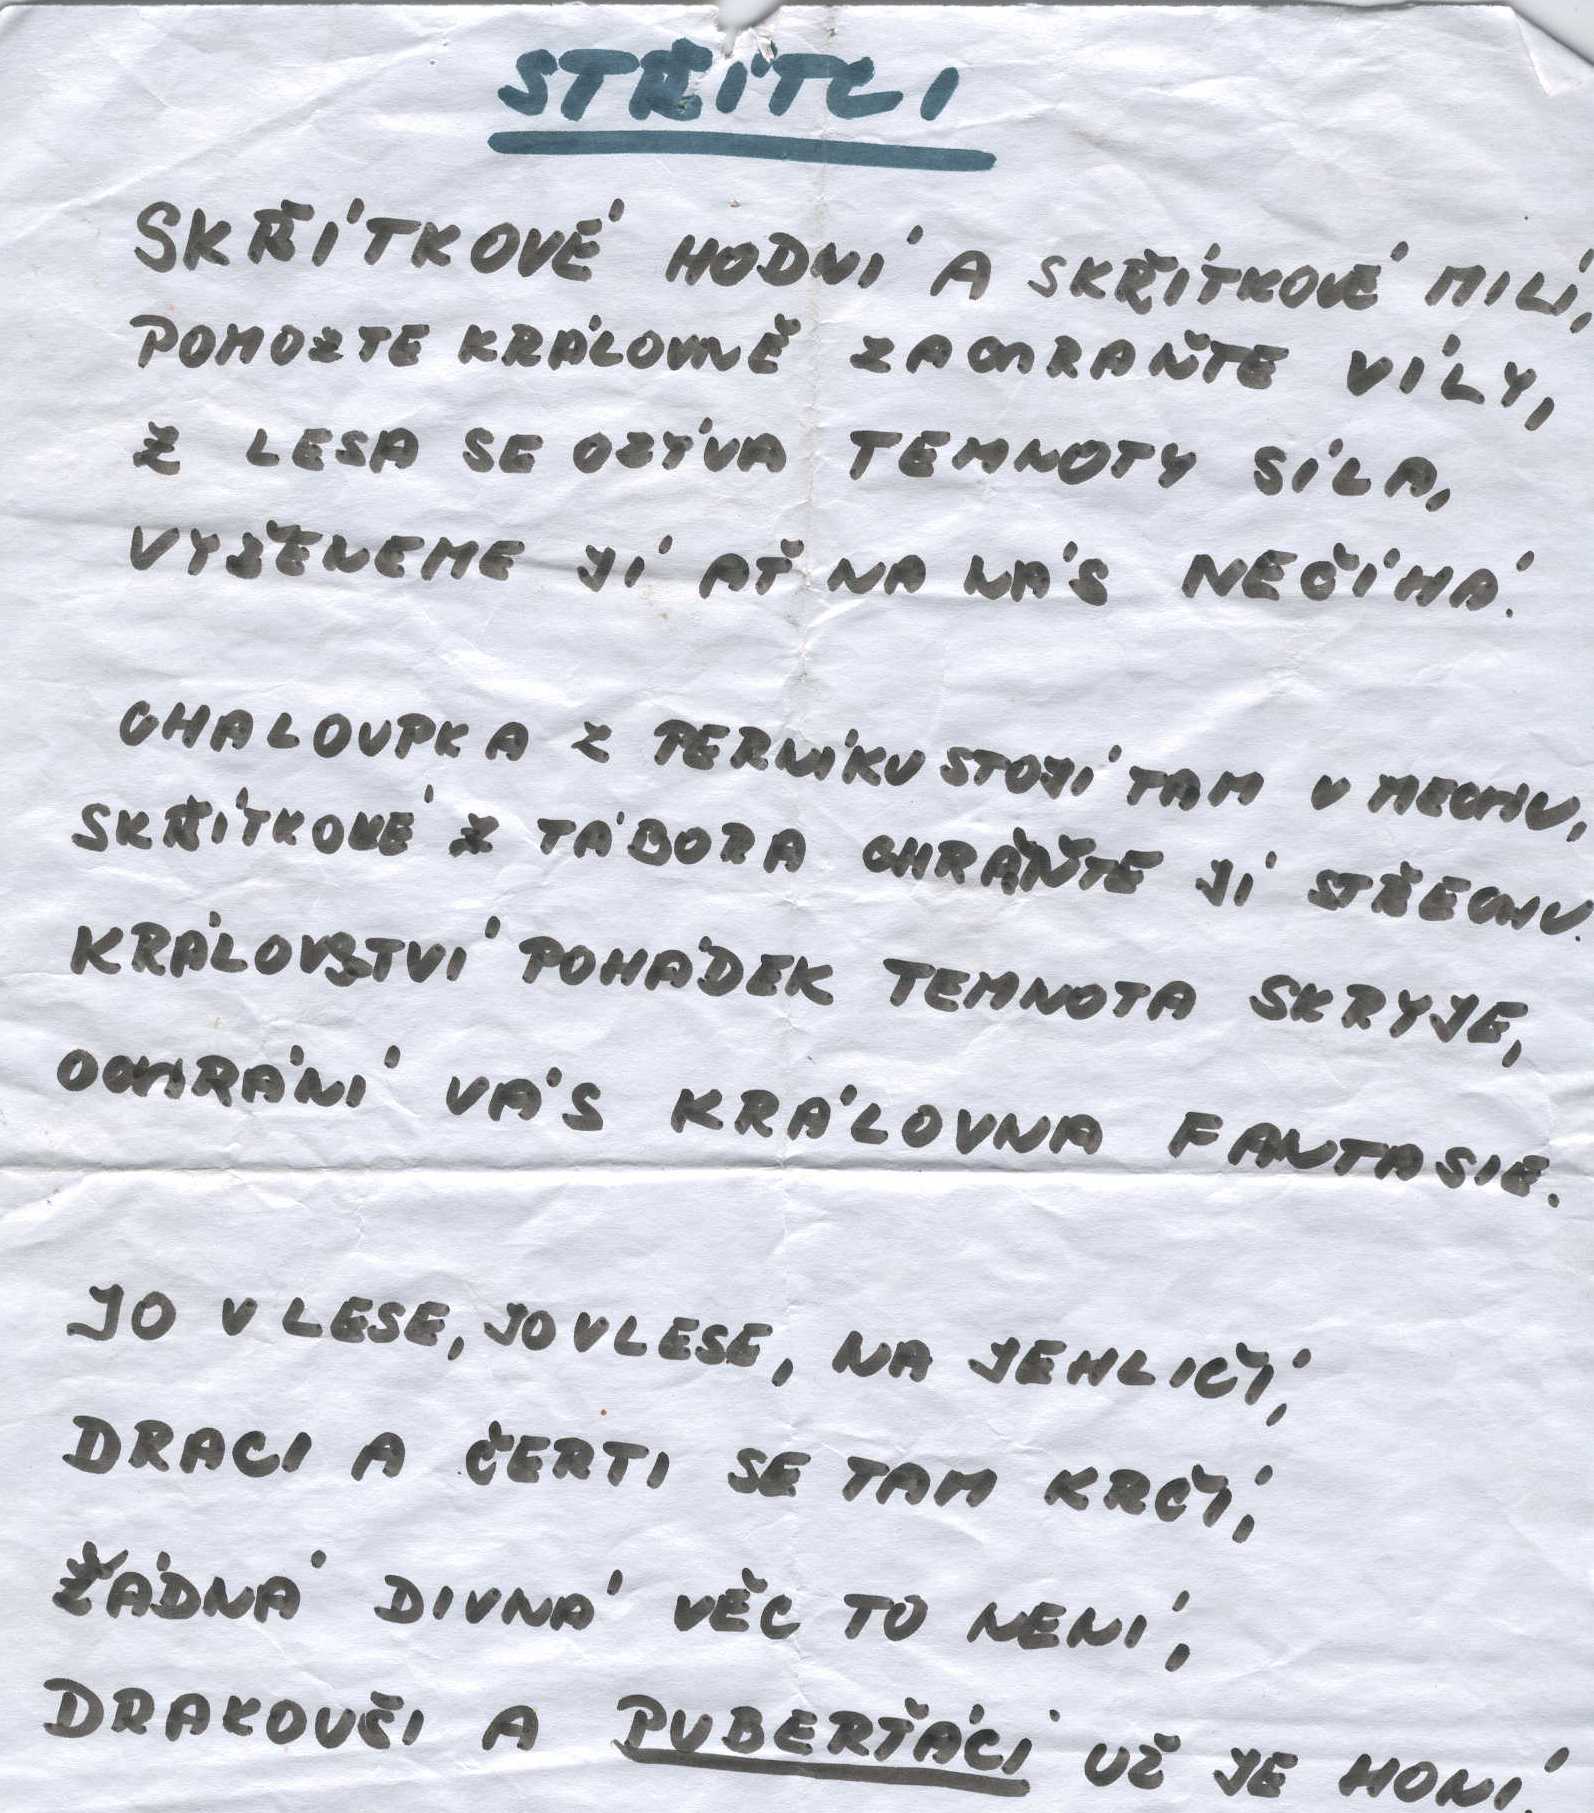 STŘÍTCI
SKŘÍTKOVÉ HODNÍ A SKŘÍTKOVÉ MILÍ,
POMOZTE KRÁLOVNĚ ZACHRAŇTE VÍLY,
Z LESA SE OZÝVÁ TEMNOTY SÍLA,
VYŽENEME JÍ AŤ NA NÁS NEČÍHÁ.
CHALOUPKA Z PERNÍKU STOJÍ TAM V MECHU,
SKŘÍTKOVÉ Z TÁBORA CHRAŇTE JÍ STŘECHU.
KRÁLOVSTVÍ POHÁDEK TEMNOTA SKRYJE,
OCHRÁNÍ VÁS KRÁLOVNA FANTASIE.
JO V LESE, JO V LESE, NA JEHLIČÍ,
DRACI A ČERTI SE TAM KRČÍ,
ŽÁDNÁ DIVNÁ VĚC TO NENÍ,
DRAKOUŠI A PUBERŤÁCI UŽ JE HONÍ.